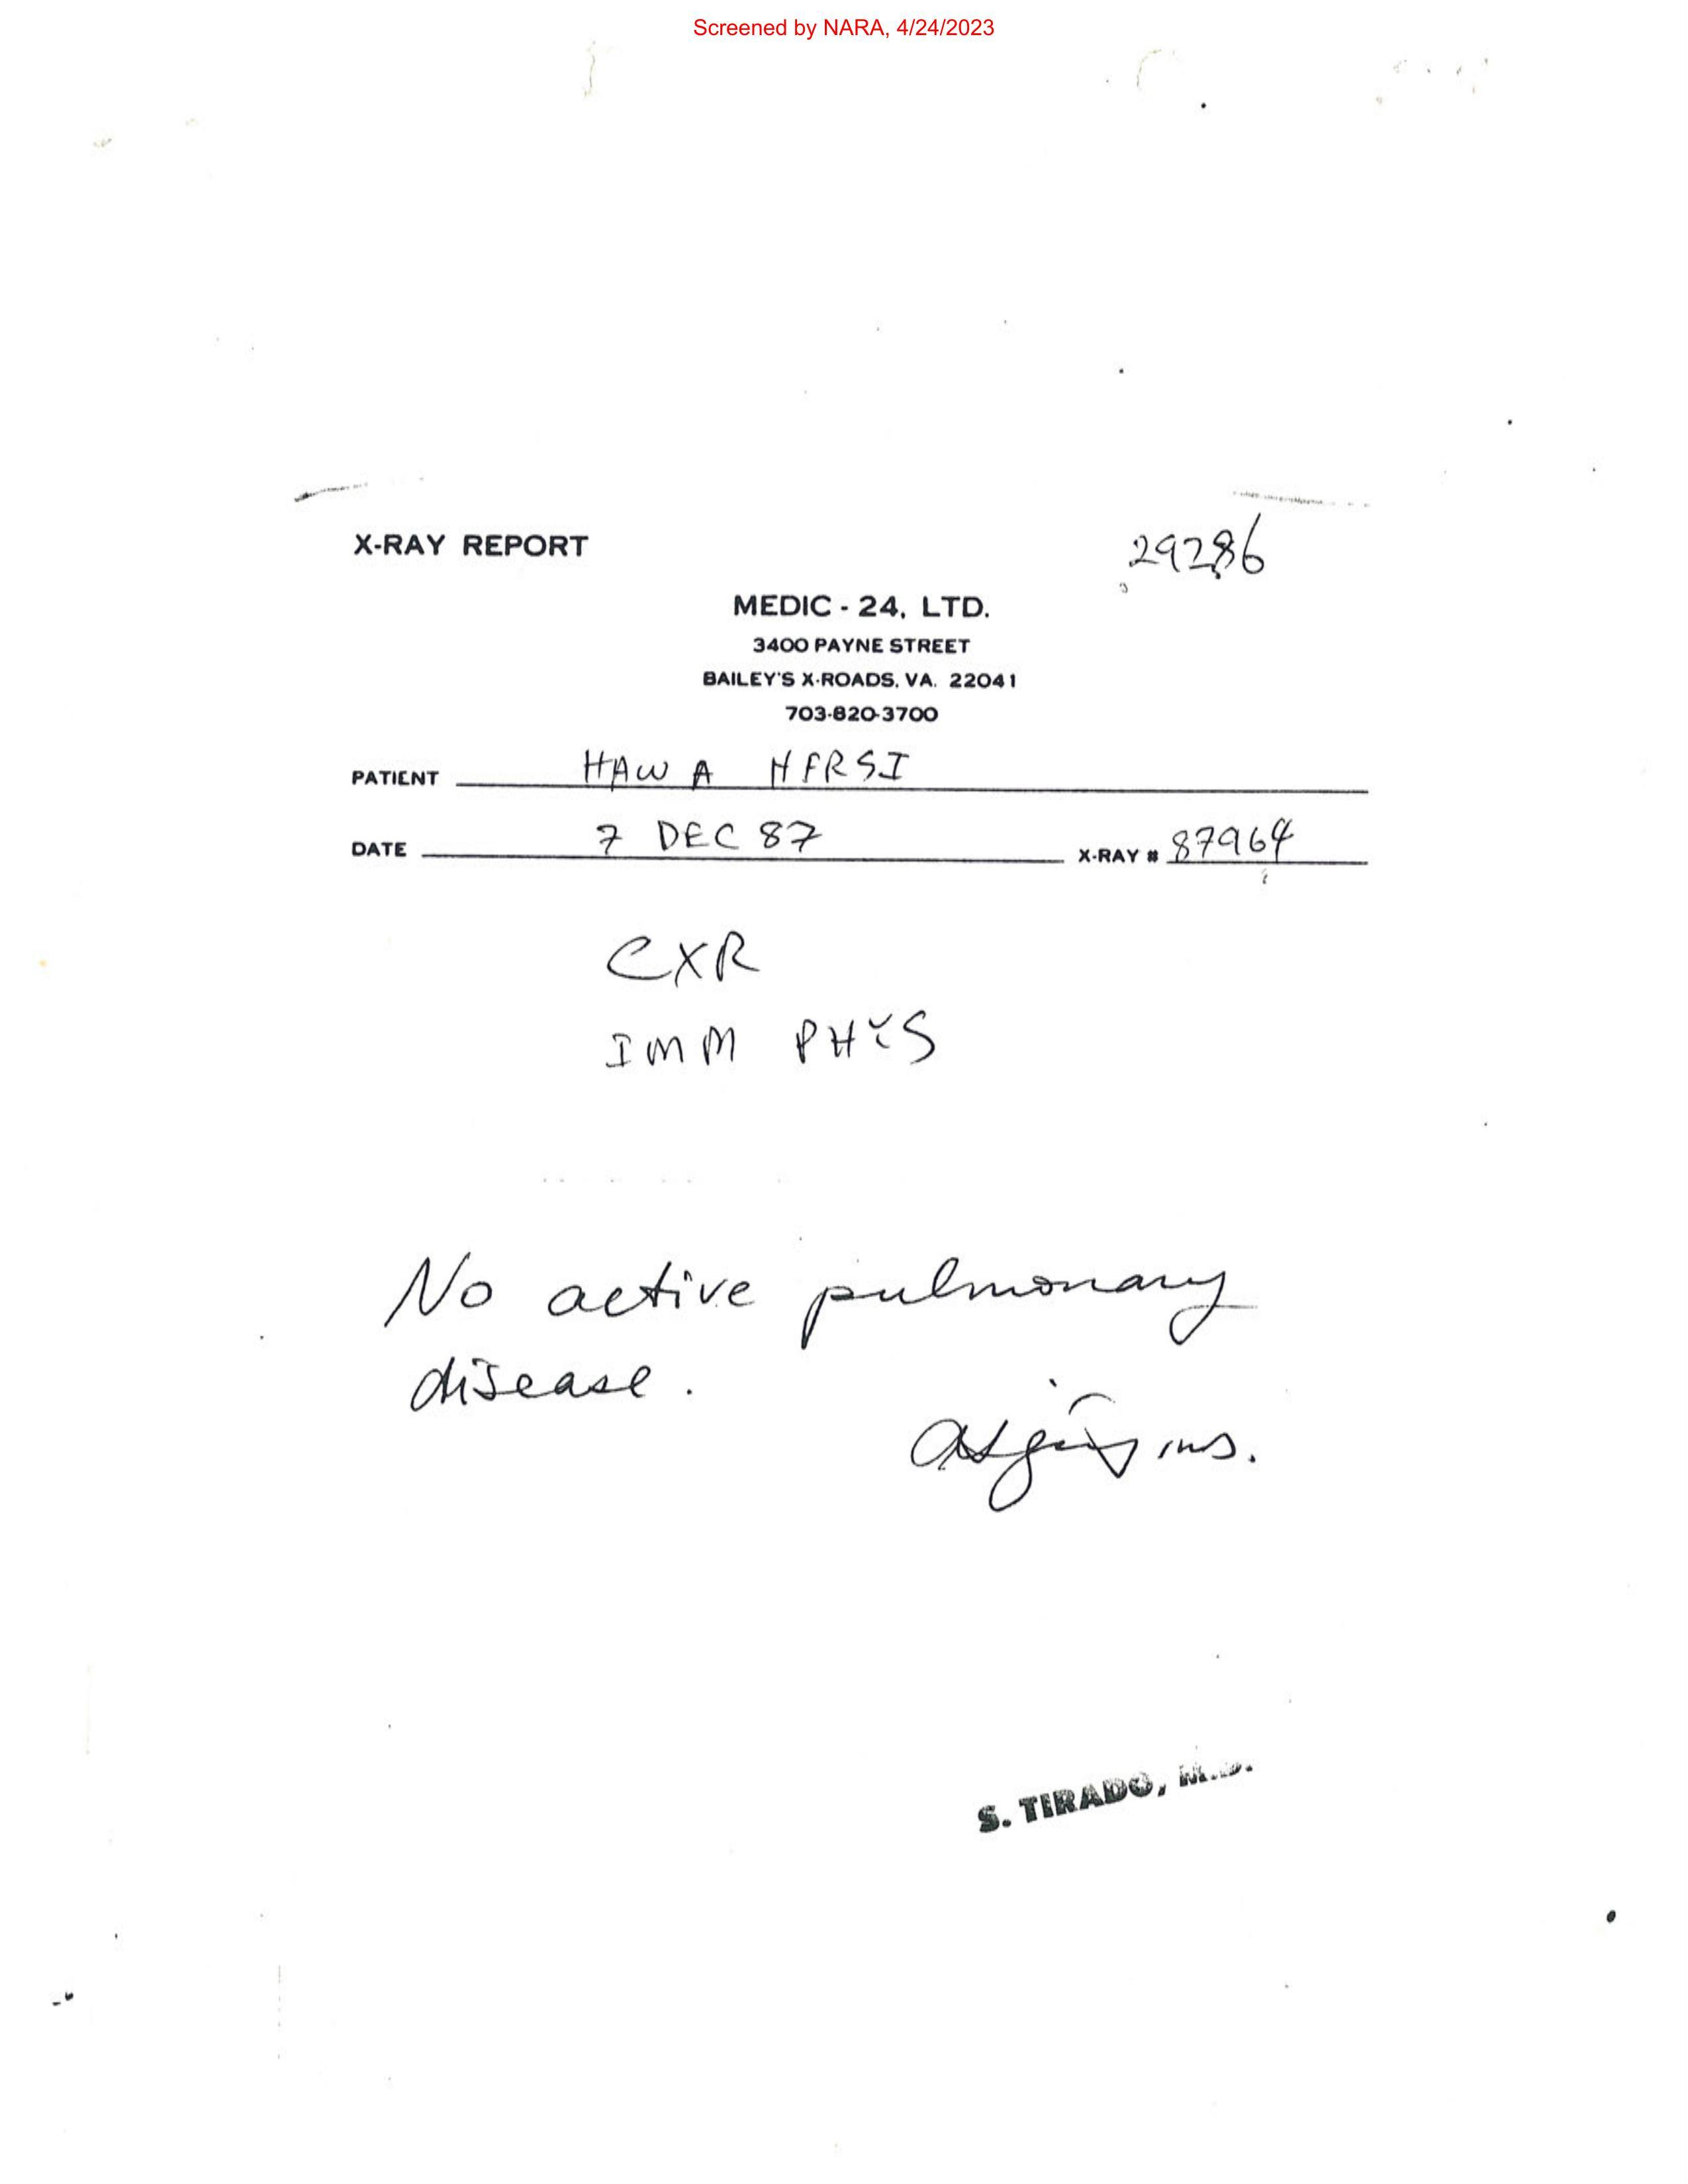 Screened by NARA, 4/24/2023
X-RAY REPORT
29286
MEDIC - 24, LTD.
3400 PAYNE STREET
BAILEY'S X-ROADS, VA. 22041
703-820-3700
PATIENT HAWA HERSI
DATE 7 DEC 87 X-RAY # 87964
CXR
IMM PHYS
No active pulmonary
disease.
M.D.
S. TIRADO, M.D.